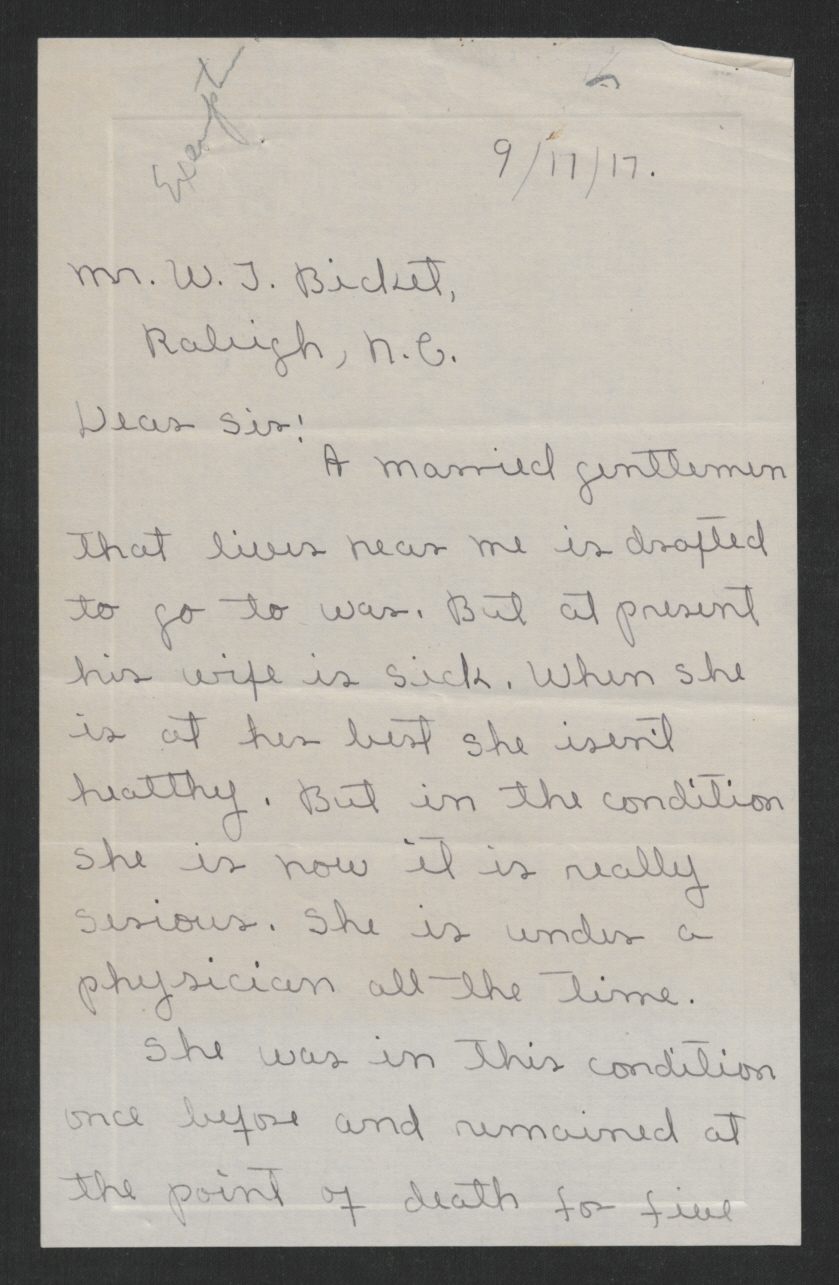 Exemption
9/17/17.
Mr. W. T. Bicket,
Raleigh, N.C.
Dear Sir!
A married gentlemen
that lives near me is drafted
to go to war. But at present
his wife is sick. When she
is at her best she isen't
healthy. But in the condition
she is now it is really
serious. She is under a
physician all the time.
She was in this condition
once before and remained at
the point of death for five